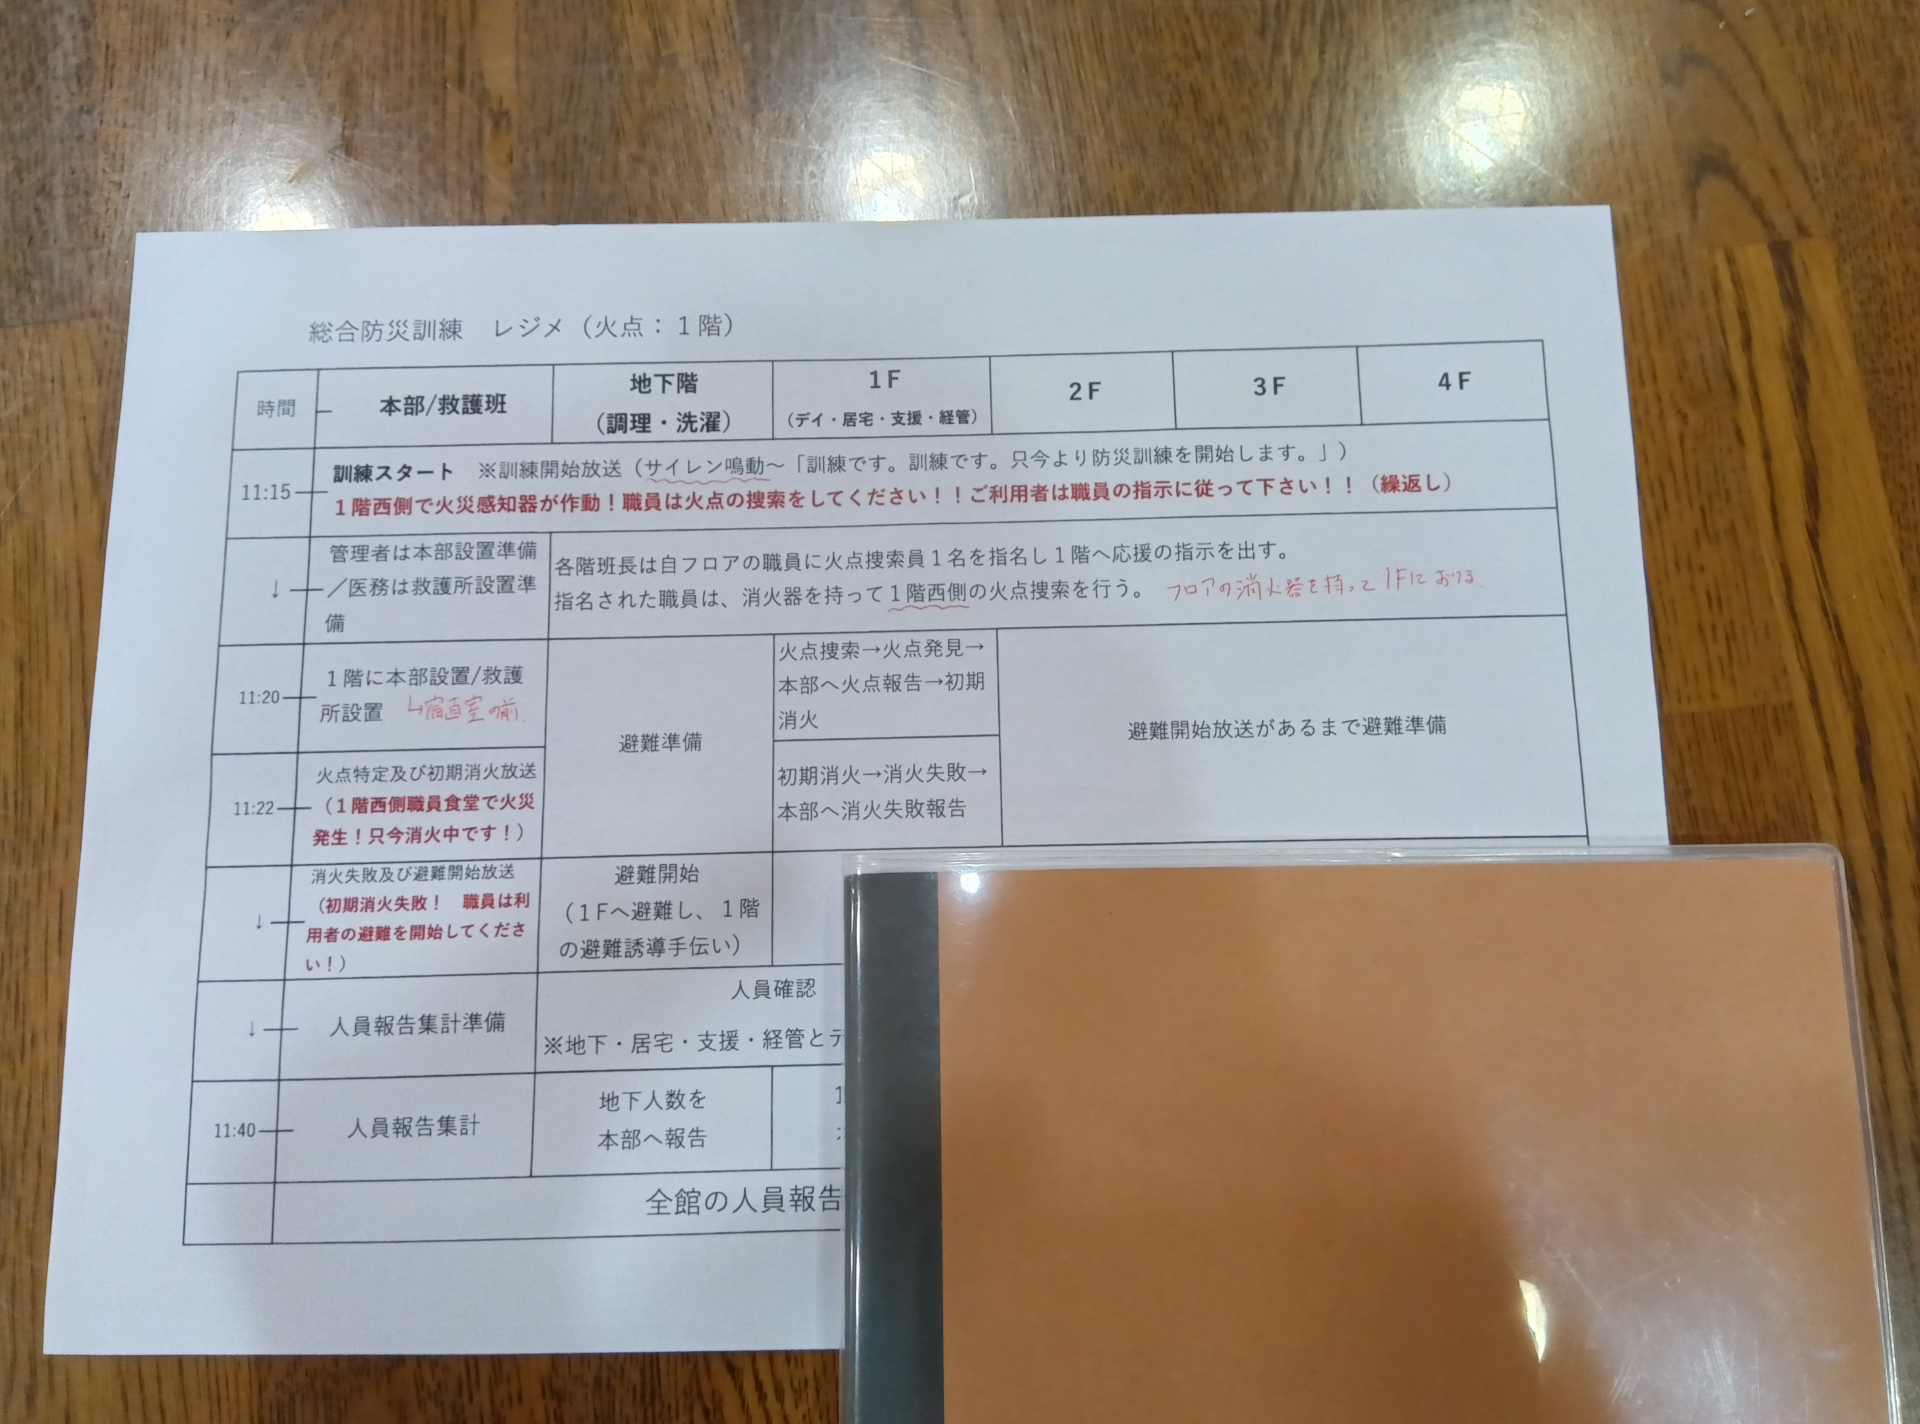 総合防災訓練　レジメ（火点：１階）
時間
本部/救護班
地下階
（調理・洗濯）
1F
（デイ・居宅・支援・経管）
2F
3F
4F
11:15
訓練スタート　※訓練開始放送（サイレン鳴動～「訓練です。訓練です。只今より防災訓練を開始します。」）
１階西側で火災感知器が作動！職員は火点の捜索をしてください！！ご利用者は職員の指示に従って下さい！！（繰返し）
↓
管理者は本部設置準備
／医務は救護所設置準
備
各階班長は自フロアの職員に火点捜索員１名を指名し１階へ応援の指示を出す。
指名された職員は、消火器を持って１階西側の火点捜索を行う。 フロアの消火器を持って1Fにおりる.
11:20
１階に本部設置/救護
所設置 ↳宿直室の前.
避難準備
火点捜索→火点発見→
本部へ火点報告→初期
消火
避難開始放送があるまで避難準備
11:22
火点特定及び初期消火放送
（１階西側職員食堂で火災
発生！只今消火中です！）
初期消火→消火失敗→
本部へ消火失敗報告
↓
消火失敗及び避難開始放送
（初期消火失敗！　職員は利
用者の避難を開始してくださ
い！）
避難開始
（１Fへ避難し、１階
の避難誘導手伝い）
↓
人員報告集計準備
人員確認
※地下・居宅・支援・経管とデ
11:40
人員報告集計
地下人数を
本部へ報告
全館の人員報告